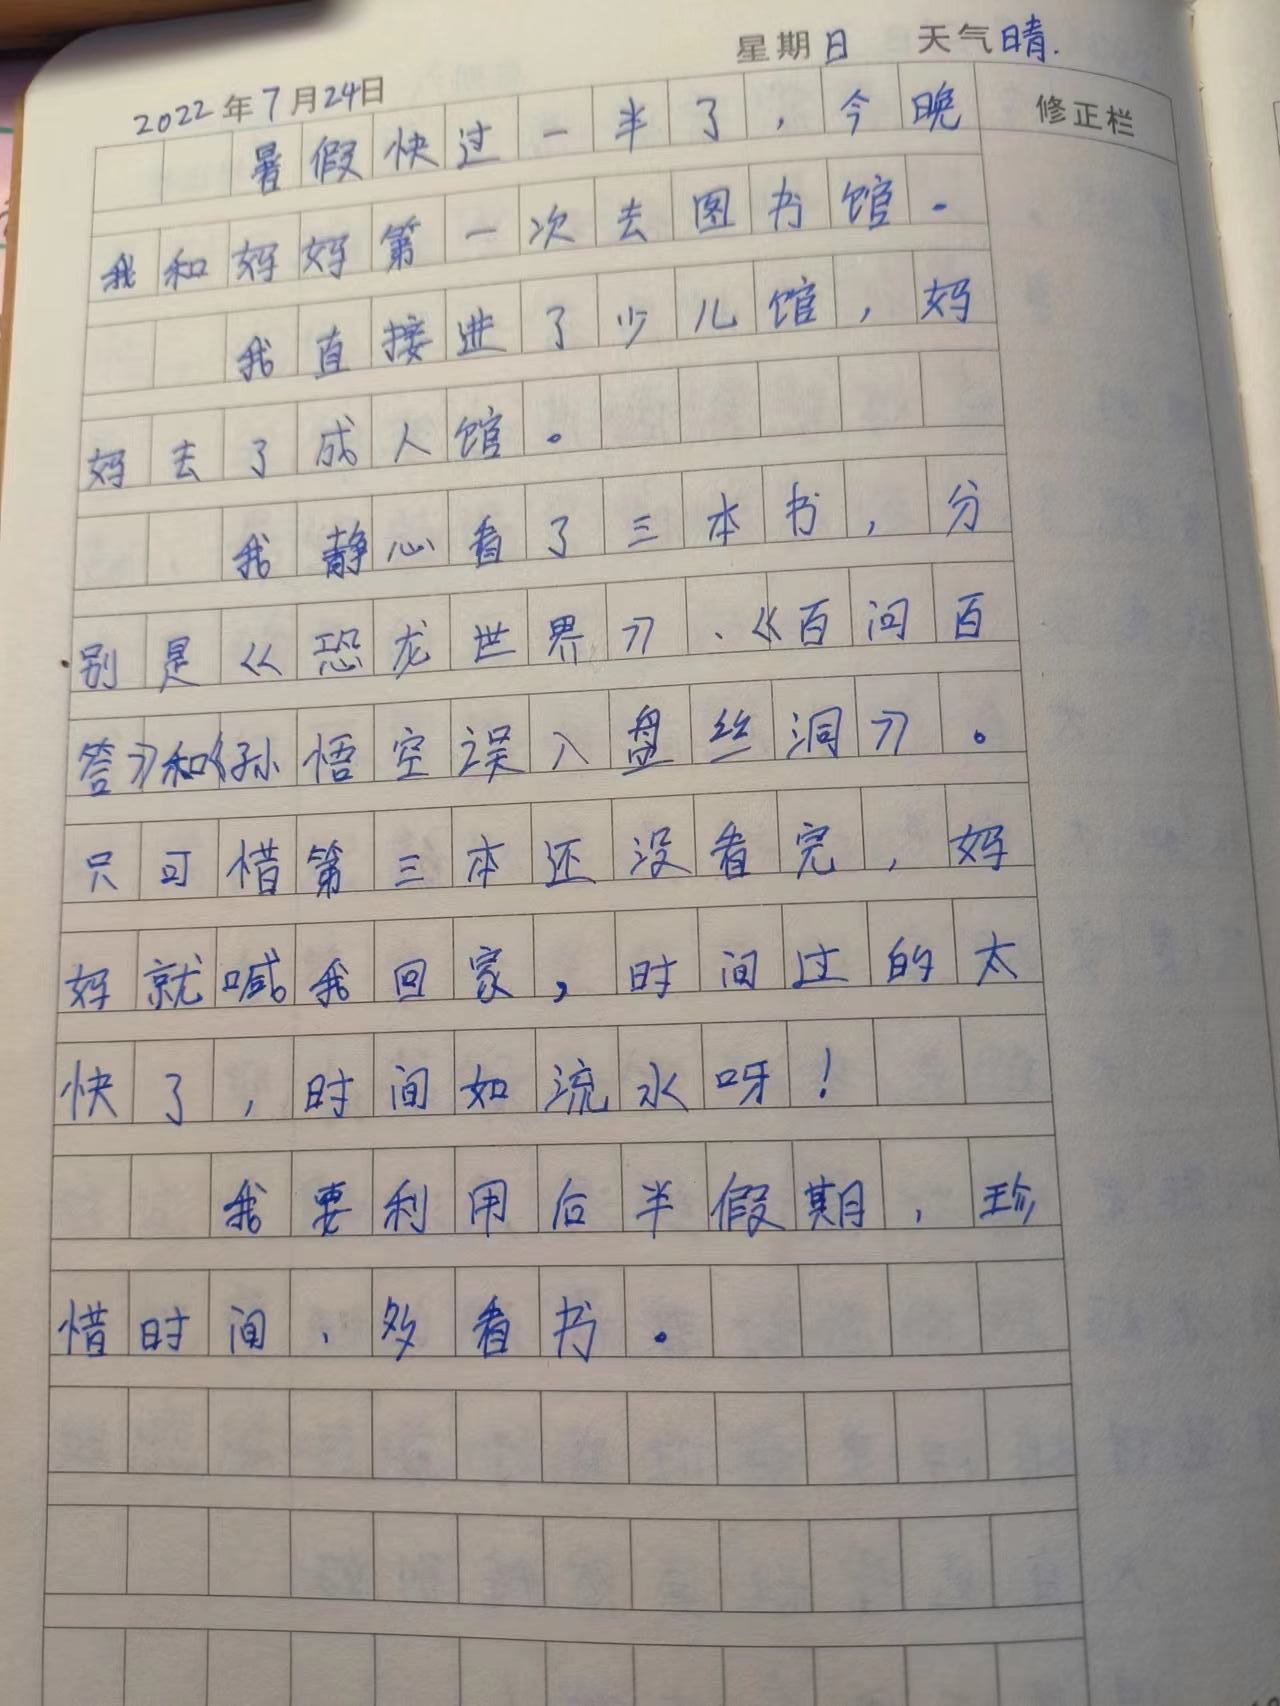 星期日 天气晴.
2022年7月24日
修正栏
暑假快过一半了，今晚
我和妈妈第一次去图书馆。
我直接进了少儿馆，妈
妈去了成人馆。
我静心看了三本书，分
别是《恐龙世界》、《百问百
答》和《孙悟空误入盘丝洞》。
只可惜第三本还没看完，妈
妈就喊我回家，时间过的太
快了，时间如流水呀！
我要利用后半假期，珍
惜时间，多看书。